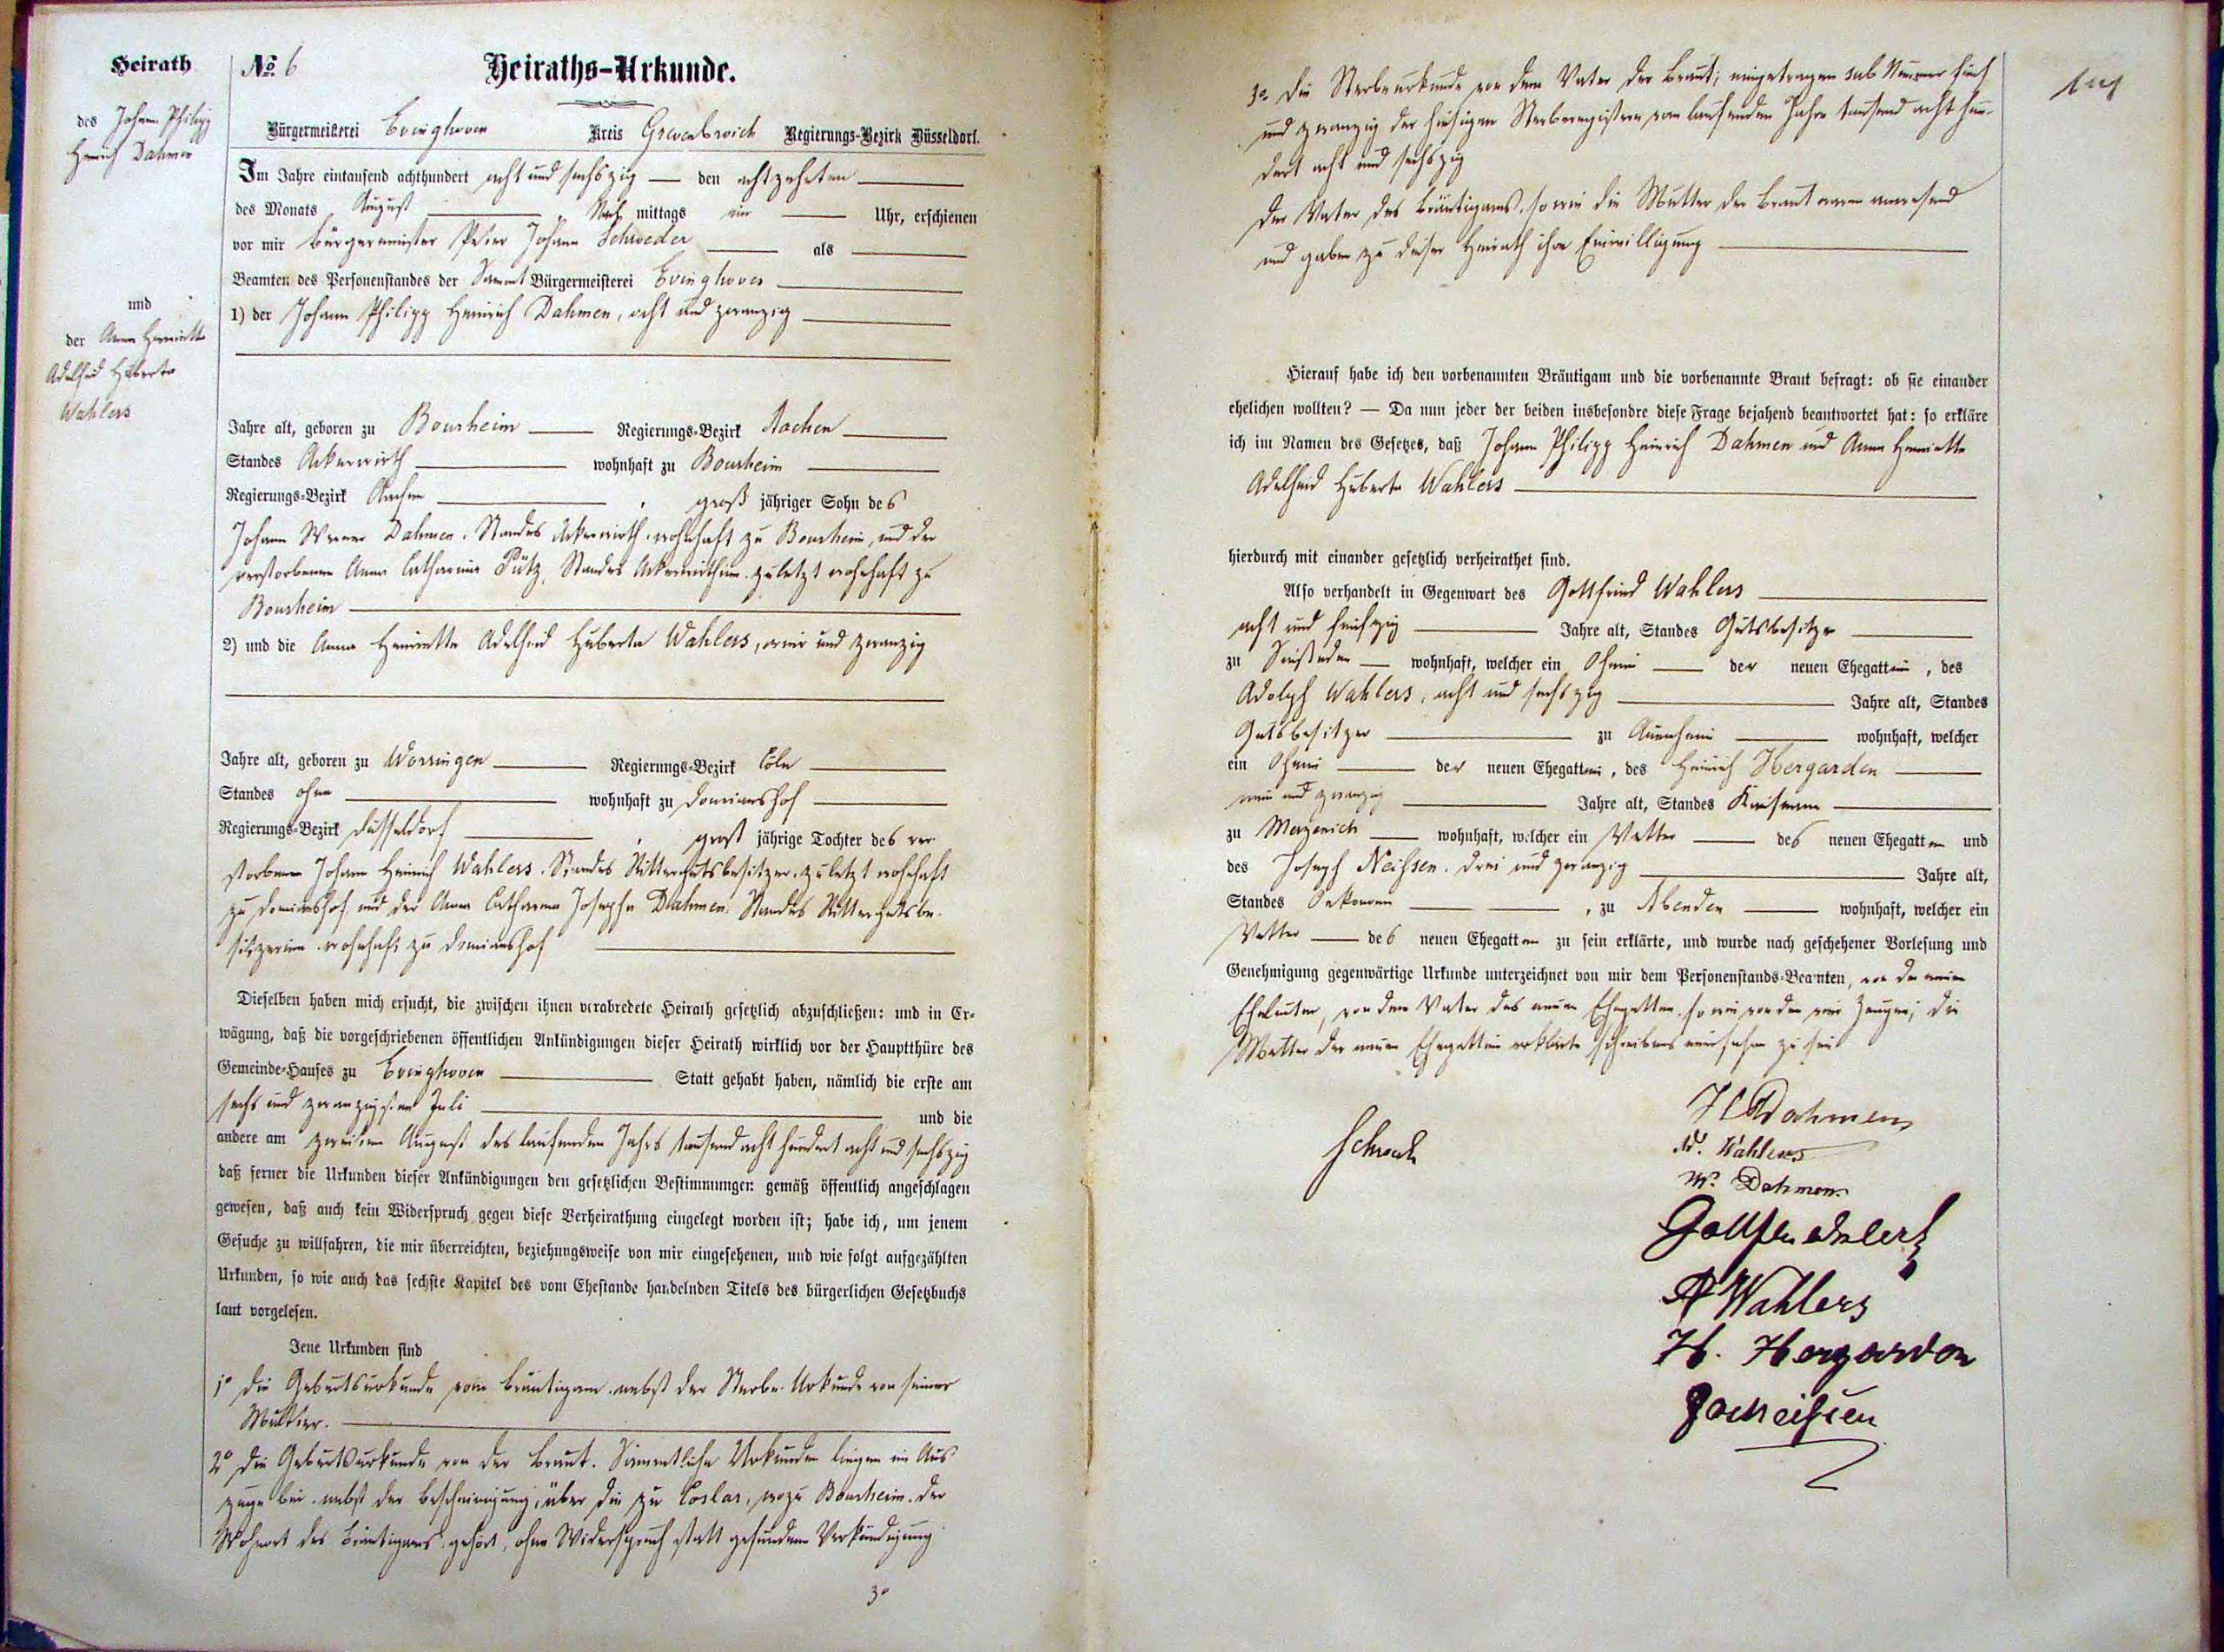 Heirath
des Johann Philipp
Heinrich Dahmen
und
der Anna Henriette
Adelheid Huberta
Wahlers
No. 6
Heiraths-Urkunde.
Bürgermeisterei Evinghoven Kreis Grevenbroich Regierungs-Bezirk Düsseldorf.
Im Jahre eintausend achthundert acht und sechszig den achtzehnten
des Monats August Nach mittags ein Uhr, erschienen
vor mir Bürgermeister Peter Johann Schroeder als
Beamten des Personenstandes der Sammt Bürgermeisterei Evinghoven
1) der Johann Philipp Heinrich Dahmen, acht und zwanzig
Jahre alt, geboren zu Bourheim Regierungs-Bezirk Aachen
Standes Ackerwirth wohnhaft zu Bourheim
Regierungs-Bezirk Aachen, groß jähriger Sohn des
Johann Werner Dahmen, Standes Ackerwirth, wohnhaft zu Bourheim, und der
verstorbenen Anna Catharina Pütz, Standes Ackerwirthin, zuletzt wohnhaft zu
Bourheim
2) und die Anna Henriette Adelheid Huberta Wahlers, vier und zwanzig
Jahre alt, geboren zu Worringen Regierungs-Bezirk Cöln
Standes ohne wohnhaft zu Damianshof
Regierungs-Bezirk Düsseldorf, groß jährige Tochter des ver
storbenen Johann Heinrich Wahlers, Standes Rittergutsbesitzer, zuletzt wohnhaft
zu Damianshof und der Anna Catharina Josepha Dahmen, Standes Rittergutsbe-
sitzerin, wohnhaft zu Damianshof
Dieselben haben mich ersucht, die zwischen ihnen verabredete Heirath gesetzlich abzuschließen: und in Er-
wägung, daß die vorgeschriebenen öffentlichen Ankündigungen dieser Heirath wirklich vor der Hauptthüre des
Gemeinde-Hauses zu Evinghoven Statt gehabt haben, nämlich die erste am
sechs und zwanzigsten Juli und die
andere am zweiten August des laufenden Jahrs tausend acht hundert acht und sechszig
daß ferner die Urkunden dieser Ankündigungen den gesetzlichen Bestimmungen gemäß öffentlich angeschlagen
gewesen, daß auch kein Widerspruch gegen diese Verheirathung eingelegt worden ist; habe ich, um jenem
Gesuche zu willfahren, die mir überreichten, beziehungsweise von mir eingesehenen, und wie folgt aufgezählten
Urkunden, so wie auch das sechste Kapitel des vom Ehestande handelnden Titels des bürgerlichen Gesetzbuchs
laut vorgelesen.
Jene Urkunden sind
1° die Geburtsurkunde vom Bräutigam nebst der Sterbe-Urkunde von seiner
Mutter.
2° die Geburtsurkunde von der Braut. Sämmtliche Urkunden liegen im Aus
zuge bei nebst der Bescheinigung, über die zu Coslar, wozu Bourheim, der
Wohnort des Bräutigams gehört, ohne Widerspruch statt gefundene Verkündigung
3°
3° die Sterbeurkunde von dem Vater der Braut; eingetragen sub Nummer fünf
und zwanzig der hiesigen Sterberegistern vom laufenden Jahre tausend acht hun-
dert acht und sechszig
Der Vater des Bräutigams, so wie die Mutter der Braut waren anwesend
und gaben zu dieser Heirath ihre Einwilligung
Hierauf habe ich den vorbenannten Bräutigam und die vorbenannte Braut befragt: ob sie einander
ehelichen wollten? — Da nun jeder der beiden insbesondre diese Frage bejahend beantwortet hat: so erkläre
ich im Namen des Gesetzes, daß Johann Philipp Heinrich Dahmen und Anna Henriette
Adelheid Huberta Wahlers
hierdurch mit einander gesetzlich verheirathet sind.
Also verhandelt in Gegenwart des Gottfried Wahlers
acht und fünfzig Jahre alt, Standes Gutsbesitzer
zu Sinsteden wohnhaft, welcher ein Oheim der neuen Ehegattin, des
Adolph Wahlers, acht und sechszig Jahre alt, Standes
Gutsbesitzer zu Auenheim wohnhaft, welcher
ein Oheim der neuen Ehegattin, des Heinrich Hergarden
neun und zwanzig Jahre alt, Standes Kaufmann
zu Merzenich wohnhaft, welcher ein Vetter des neuen Ehegatten und
des Joseph Neissen, drei und zwanzig Jahre alt,
Standes Oekonom, zu Abenden wohnhaft, welcher ein
Vetter des neuen Ehegatten zu sein erklärte, und wurde nach geschehener Vorlesung und
Genehmigung gegenwärtige Urkunde unterzeichnet von mir dem Personenstands-Beamten, von den neuen
Eheleuten, von dem Vater des neuen Ehegatten, so wie von den vier Zeugen; die
Mutter der neuen Ehegattin erklärte Schreibens unerfahren zu sein
H Dahmen
Ad. Wahlers
W. Dahmen
A Wahlers
H. Hergarden
Jos Neissen